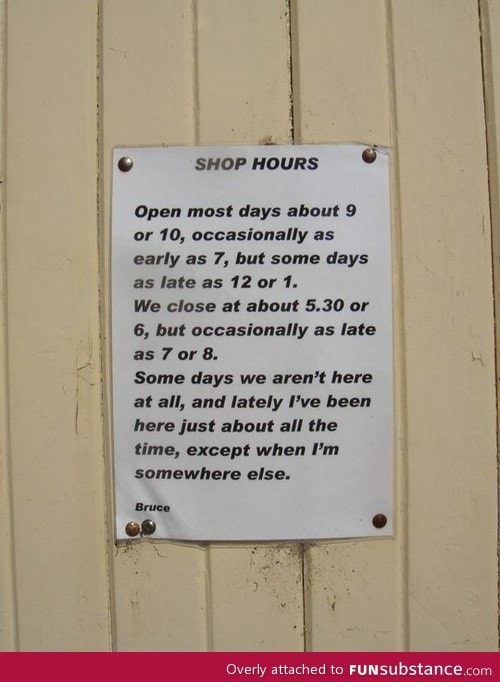 SHOP HOURS
Open most days about 9
or 10, occasionally as
early as 7, but some days
as late as 12 or 1.
We close at about 5.30 or
6, but occasionally as late
as 7 or 8.
Some days we aren't here
at all, and lately I've been
here just about all the
time, except when I'm
somewhere else.
Bruce
Overly attached to FUNsubstance.com